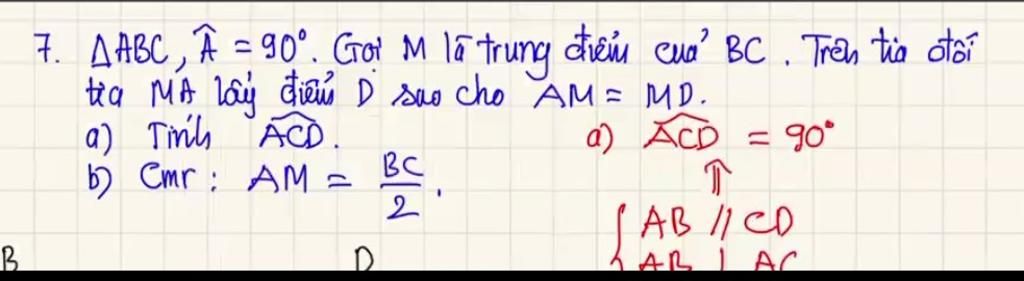 7. ΔABC, Â = 90°. Gọi M là trung điểm của BC. Trên tia đối
tia MA lấy điểm D sao cho AM = MD.
a) Tính ACD.
b) Cmr: AM = BC/2.
a) ACD = 90°
⇑
{ AB // CD
AB ⊥ AC
B D